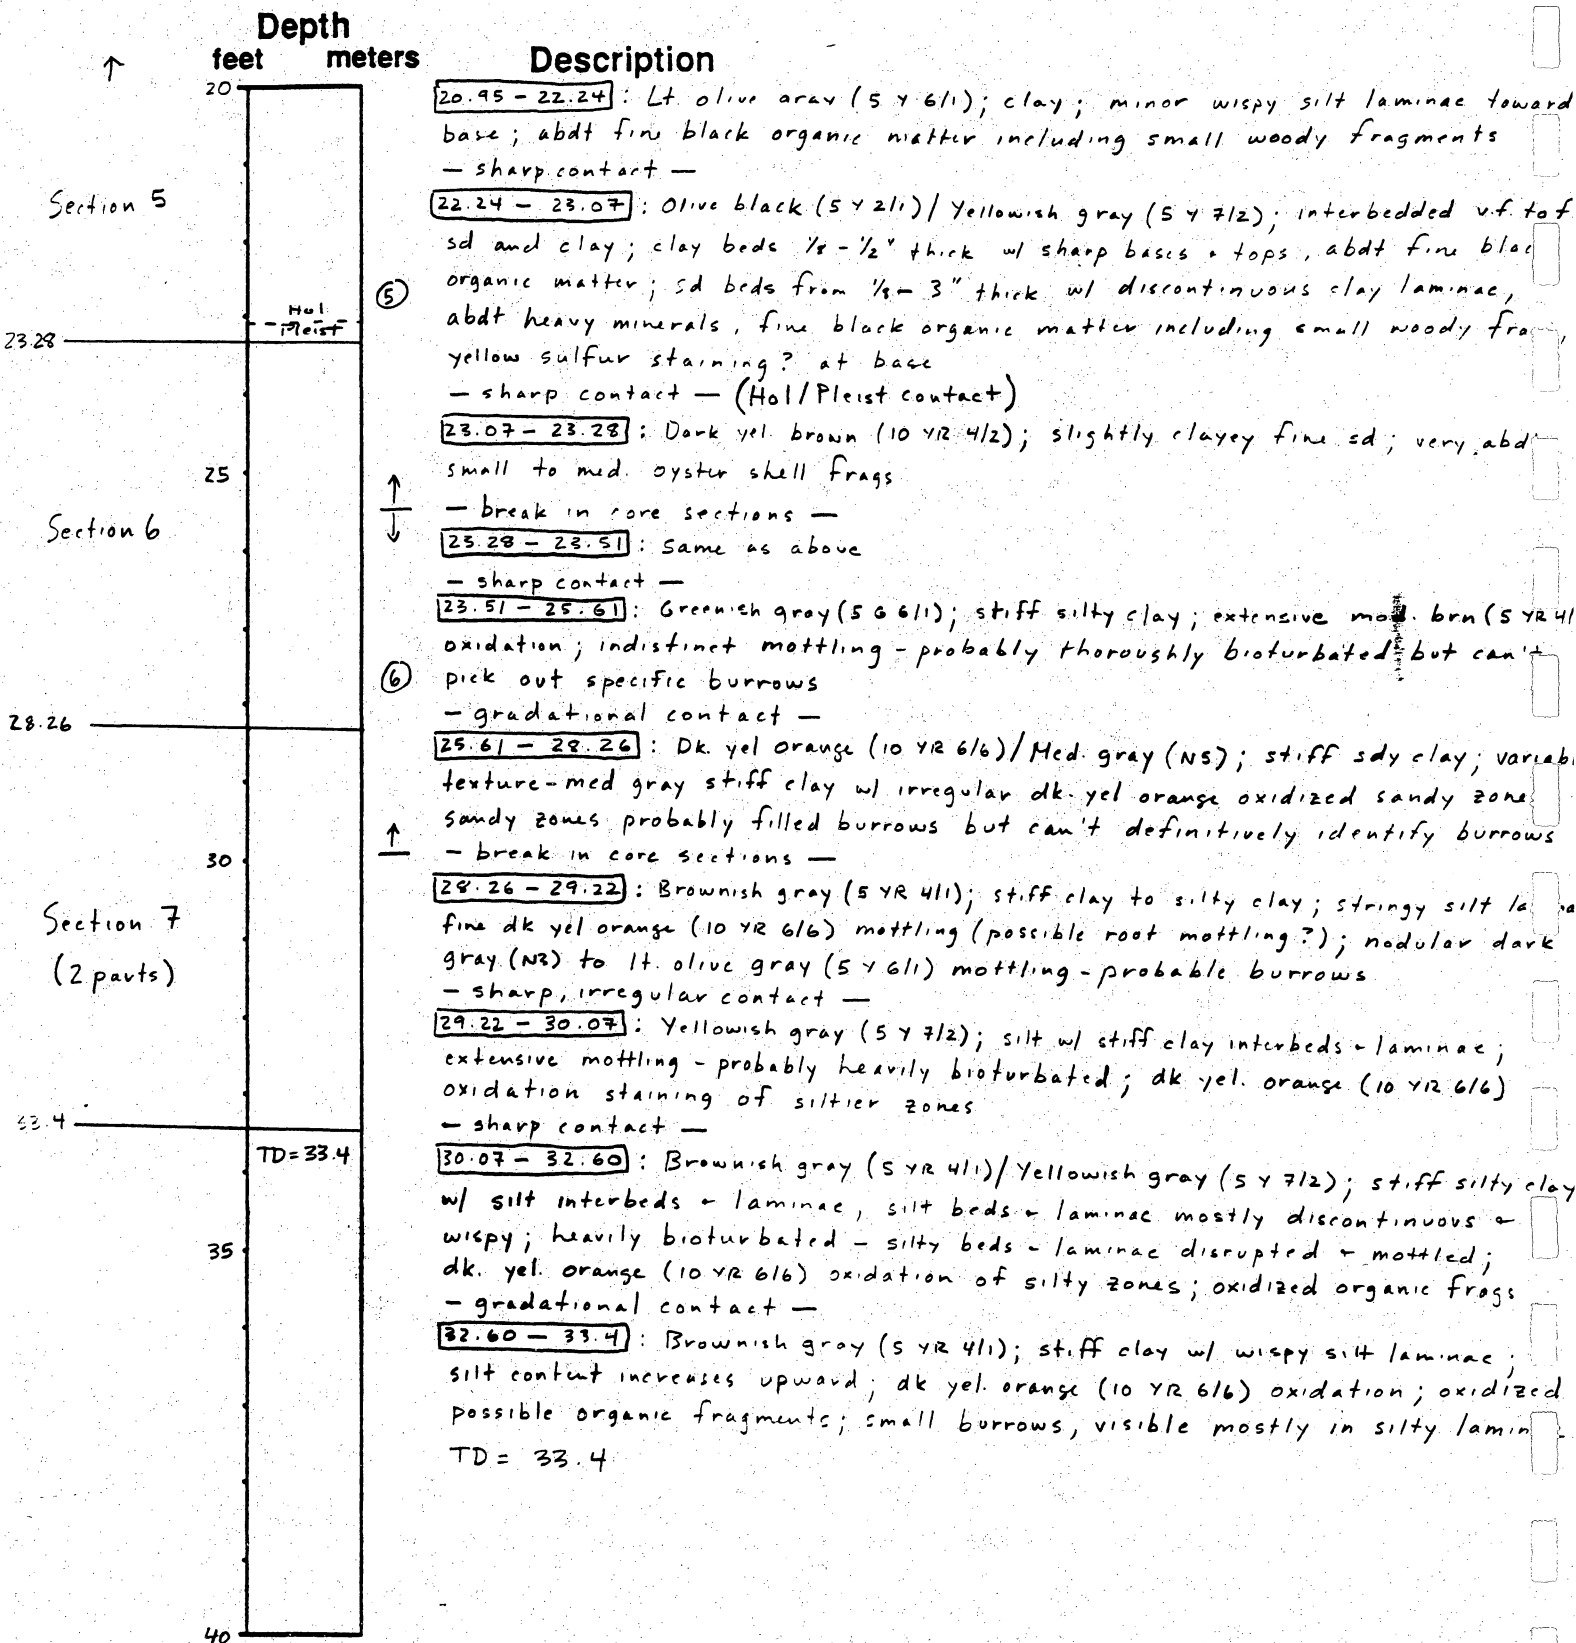 Depth
feet meters
Description
↑
20
[20.95 - 22.24]: Lt. olive aray (5 Y 6/1); clay; minor wispy silt laminae toward
base; abdt fine black organic matter including small woody fragments
— sharp contact —
Section 5
[22.24 - 23.07]: Olive black (5 Y 2/1)/Yellowish gray (5 Y 7/2); interbedded v.f. to f.
sd and clay; clay beds 1/8 - 1/2" thick w/ sharp bases + tops, abdt fine blac
⑤
organic matter; sd beds from 1/8 - 3" thick w/ discontinuous clay laminae,
Hol
Pleist
abdt heavy minerals, fine black organic matter including small woody fra
23.28
yellow sulfur staining? at base
— sharp contact — (Hol/Pleist contact)
[23.07 - 23.28]: Dark yel. brown (10 YR 4/2); slightly clayey fine sd; very abd
25
small to med. oyster shell frags
↑
— break in core sections —
↓
Section 6
[23.28 - 23.51]: Same as above
— sharp contact —
[23.51 - 25.61]: Greenish gray (5 G 6/1); stiff silty clay; extensive mod. brn (5 YR 4/
oxidation; indistinct mottling - probably thoroughly bioturbated but can't
⑥
pick out specific burrows
— gradational contact —
28.26
[25.61 - 28.26]: Dk. yel orange (10 YR 6/6)/Med. gray (N5); stiff sdy clay; variabl
texture - med gray stiff clay w/ irregular dk. yel orange oxidized sandy zone
sandy zones probably filled burrows but can't definitively identify burrows
↑
— break in core sections —
30
[28.26 - 29.22]: Brownish gray (5 YR 4/1); stiff clay to silty clay; stringy silt la
Section 7
(2 parts)
fine dk yel orange (10 YR 6/6) mottling (possible root mottling?); nodular dark
gray (N3) to lt. olive gray (5 Y 6/1) mottling - probable burrows
— sharp, irregular contact —
[29.22 - 30.07]: Yellowish gray (5 Y 7/2); silt w/ stiff clay interbeds + laminae;
extensive mottling - probably heavily bioturbated; dk yel. orange (10 YR 6/6)
oxidation staining of siltier zones
— sharp contact —
33.4
TD = 33.4
[30.07 - 32.60]: Brownish gray (5 YR 4/1)/Yellowish gray (5 Y 7/2); stiff silty clay
w/ silt interbeds + laminae, silt beds + laminae mostly discontinuous +
35
wispy; heavily bioturbated - silty beds + laminae disrupted + mottled;
dk. yel. orange (10 YR 6/6) oxidation of silty zones; oxidized organic frags
— gradational contact —
[32.60 - 33.4]: Brownish gray (5 YR 4/1); stiff clay w/ wispy silt laminae;
silt content increases upward; dk yel. orange (10 YR 6/6) oxidation; oxidized
possible organic fragments; small burrows, visible mostly in silty lamin
TD = 33.4
40